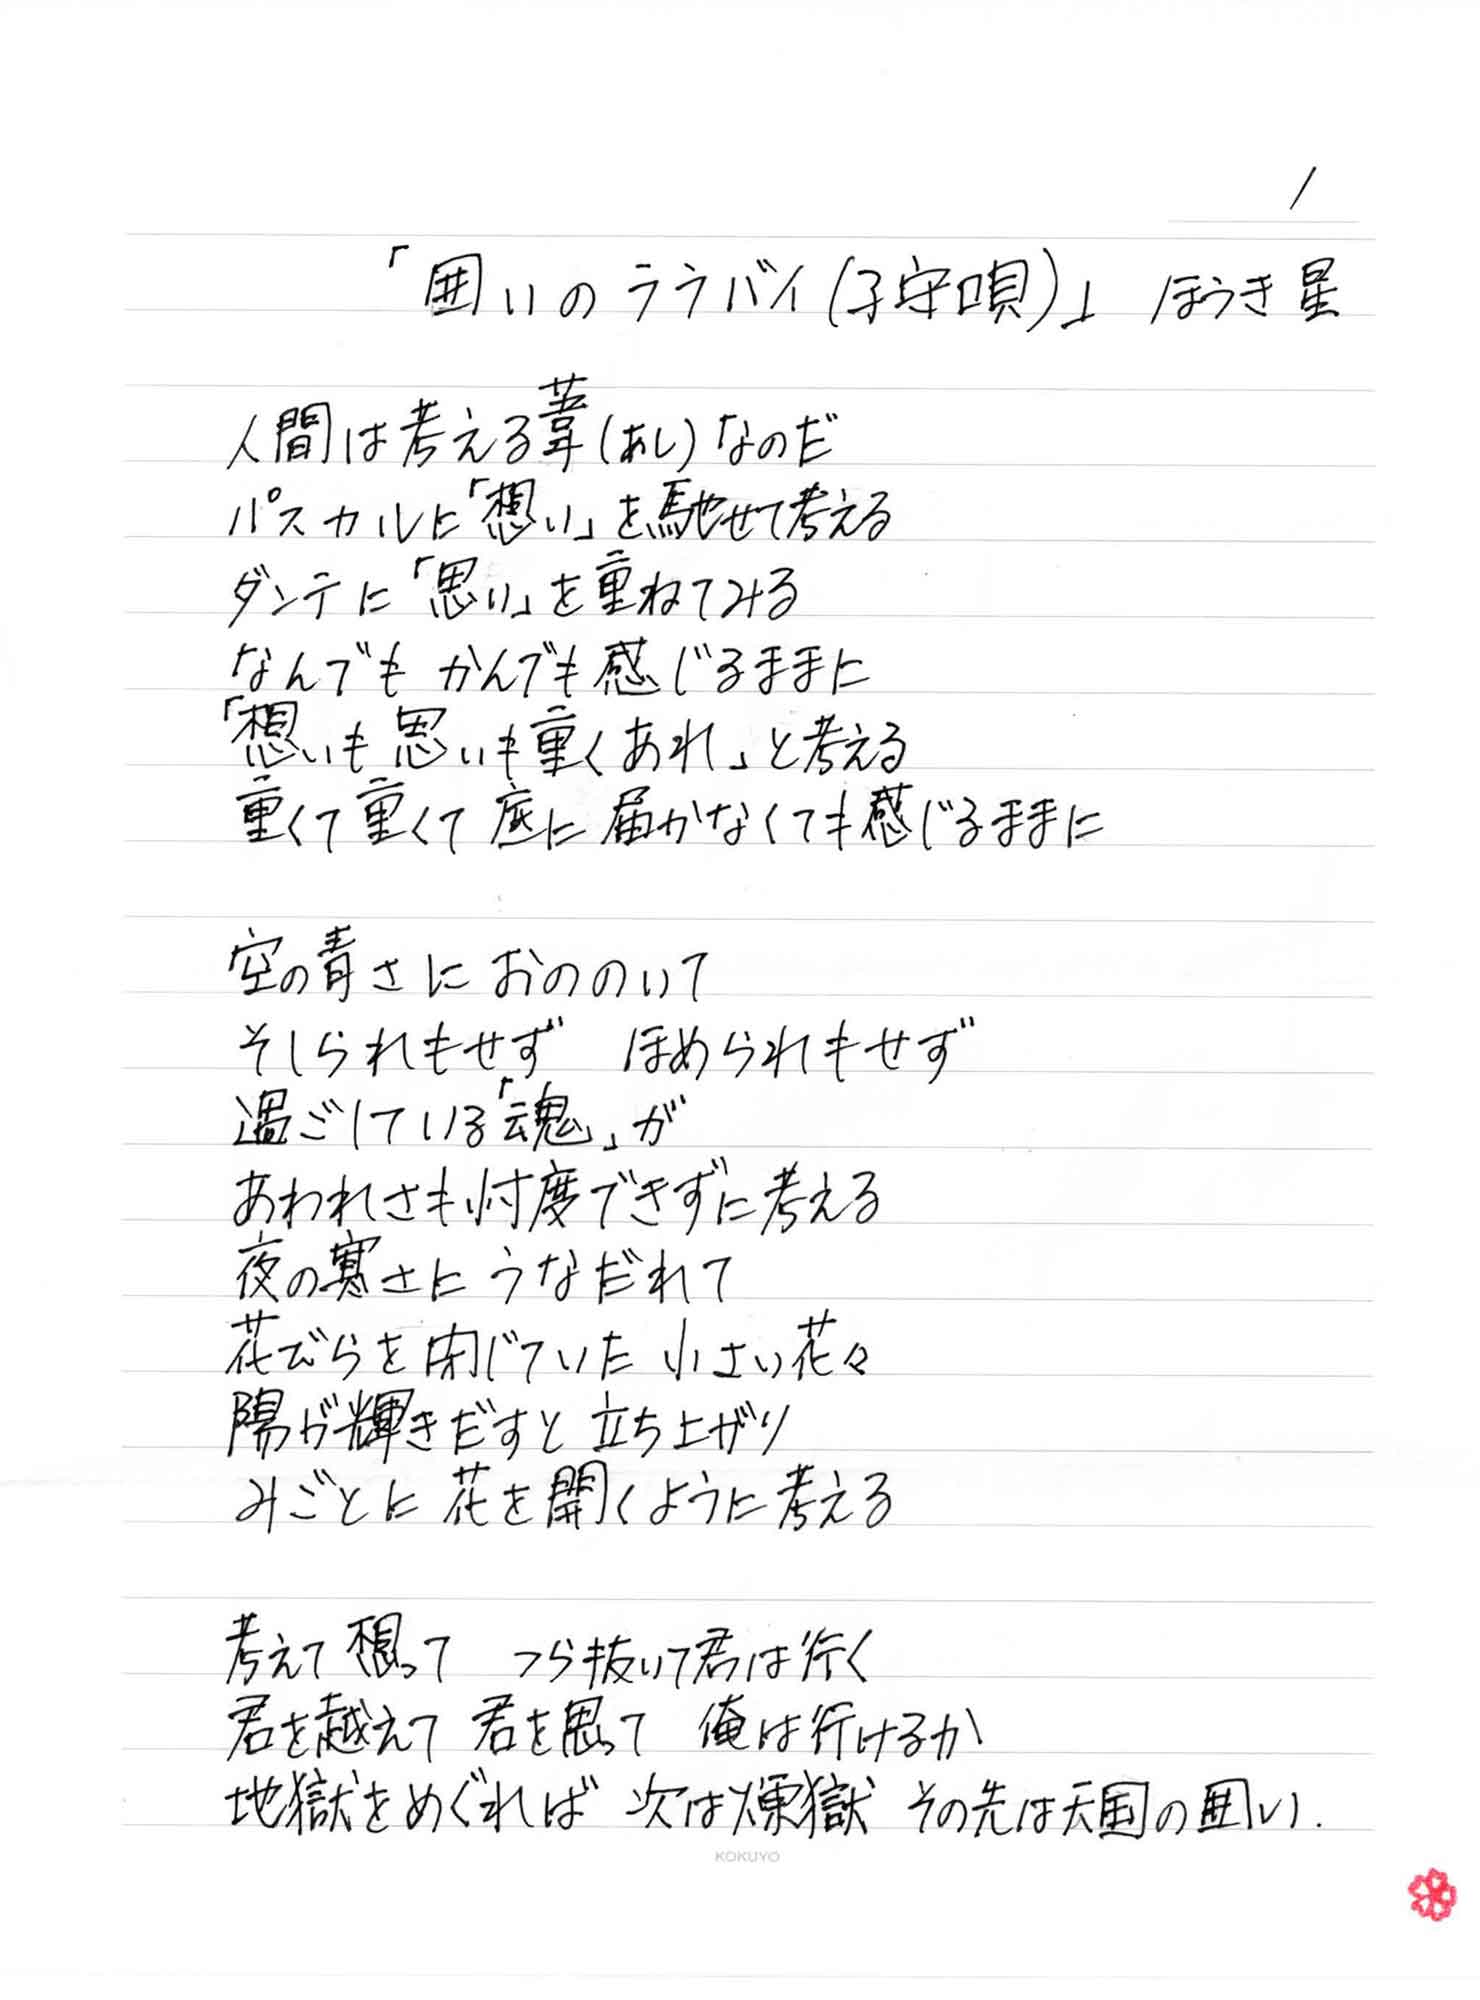 1
「囲いのララバイ(子守唄)」 ほうき星
人間は考える葦(あし)なのだ
パスカルに「想い」を馳せて考える
ダンテに「思い」を重ねてみる
なんでも かんでも感じるままに
「想いも 思いも重くあれ」と考える
重くて重くて 底に届かなくても感じるままに
空の青さに おののいて
そしられもせず ほめられもせず
過ごしている「魂」が
あわれさも忖度できずに考える
夜の寒さに うなだれて
花びらを閉じていた 小さい花々
陽が輝きだすと 立ち上がり
みごとに 花を開くように考える
考えて 想って つら抜いて君は行く
君を越えて 君を思って 俺は行けるか
地獄をめぐれば 次は煉獄 その先は天国の囲い.
KOKUYO